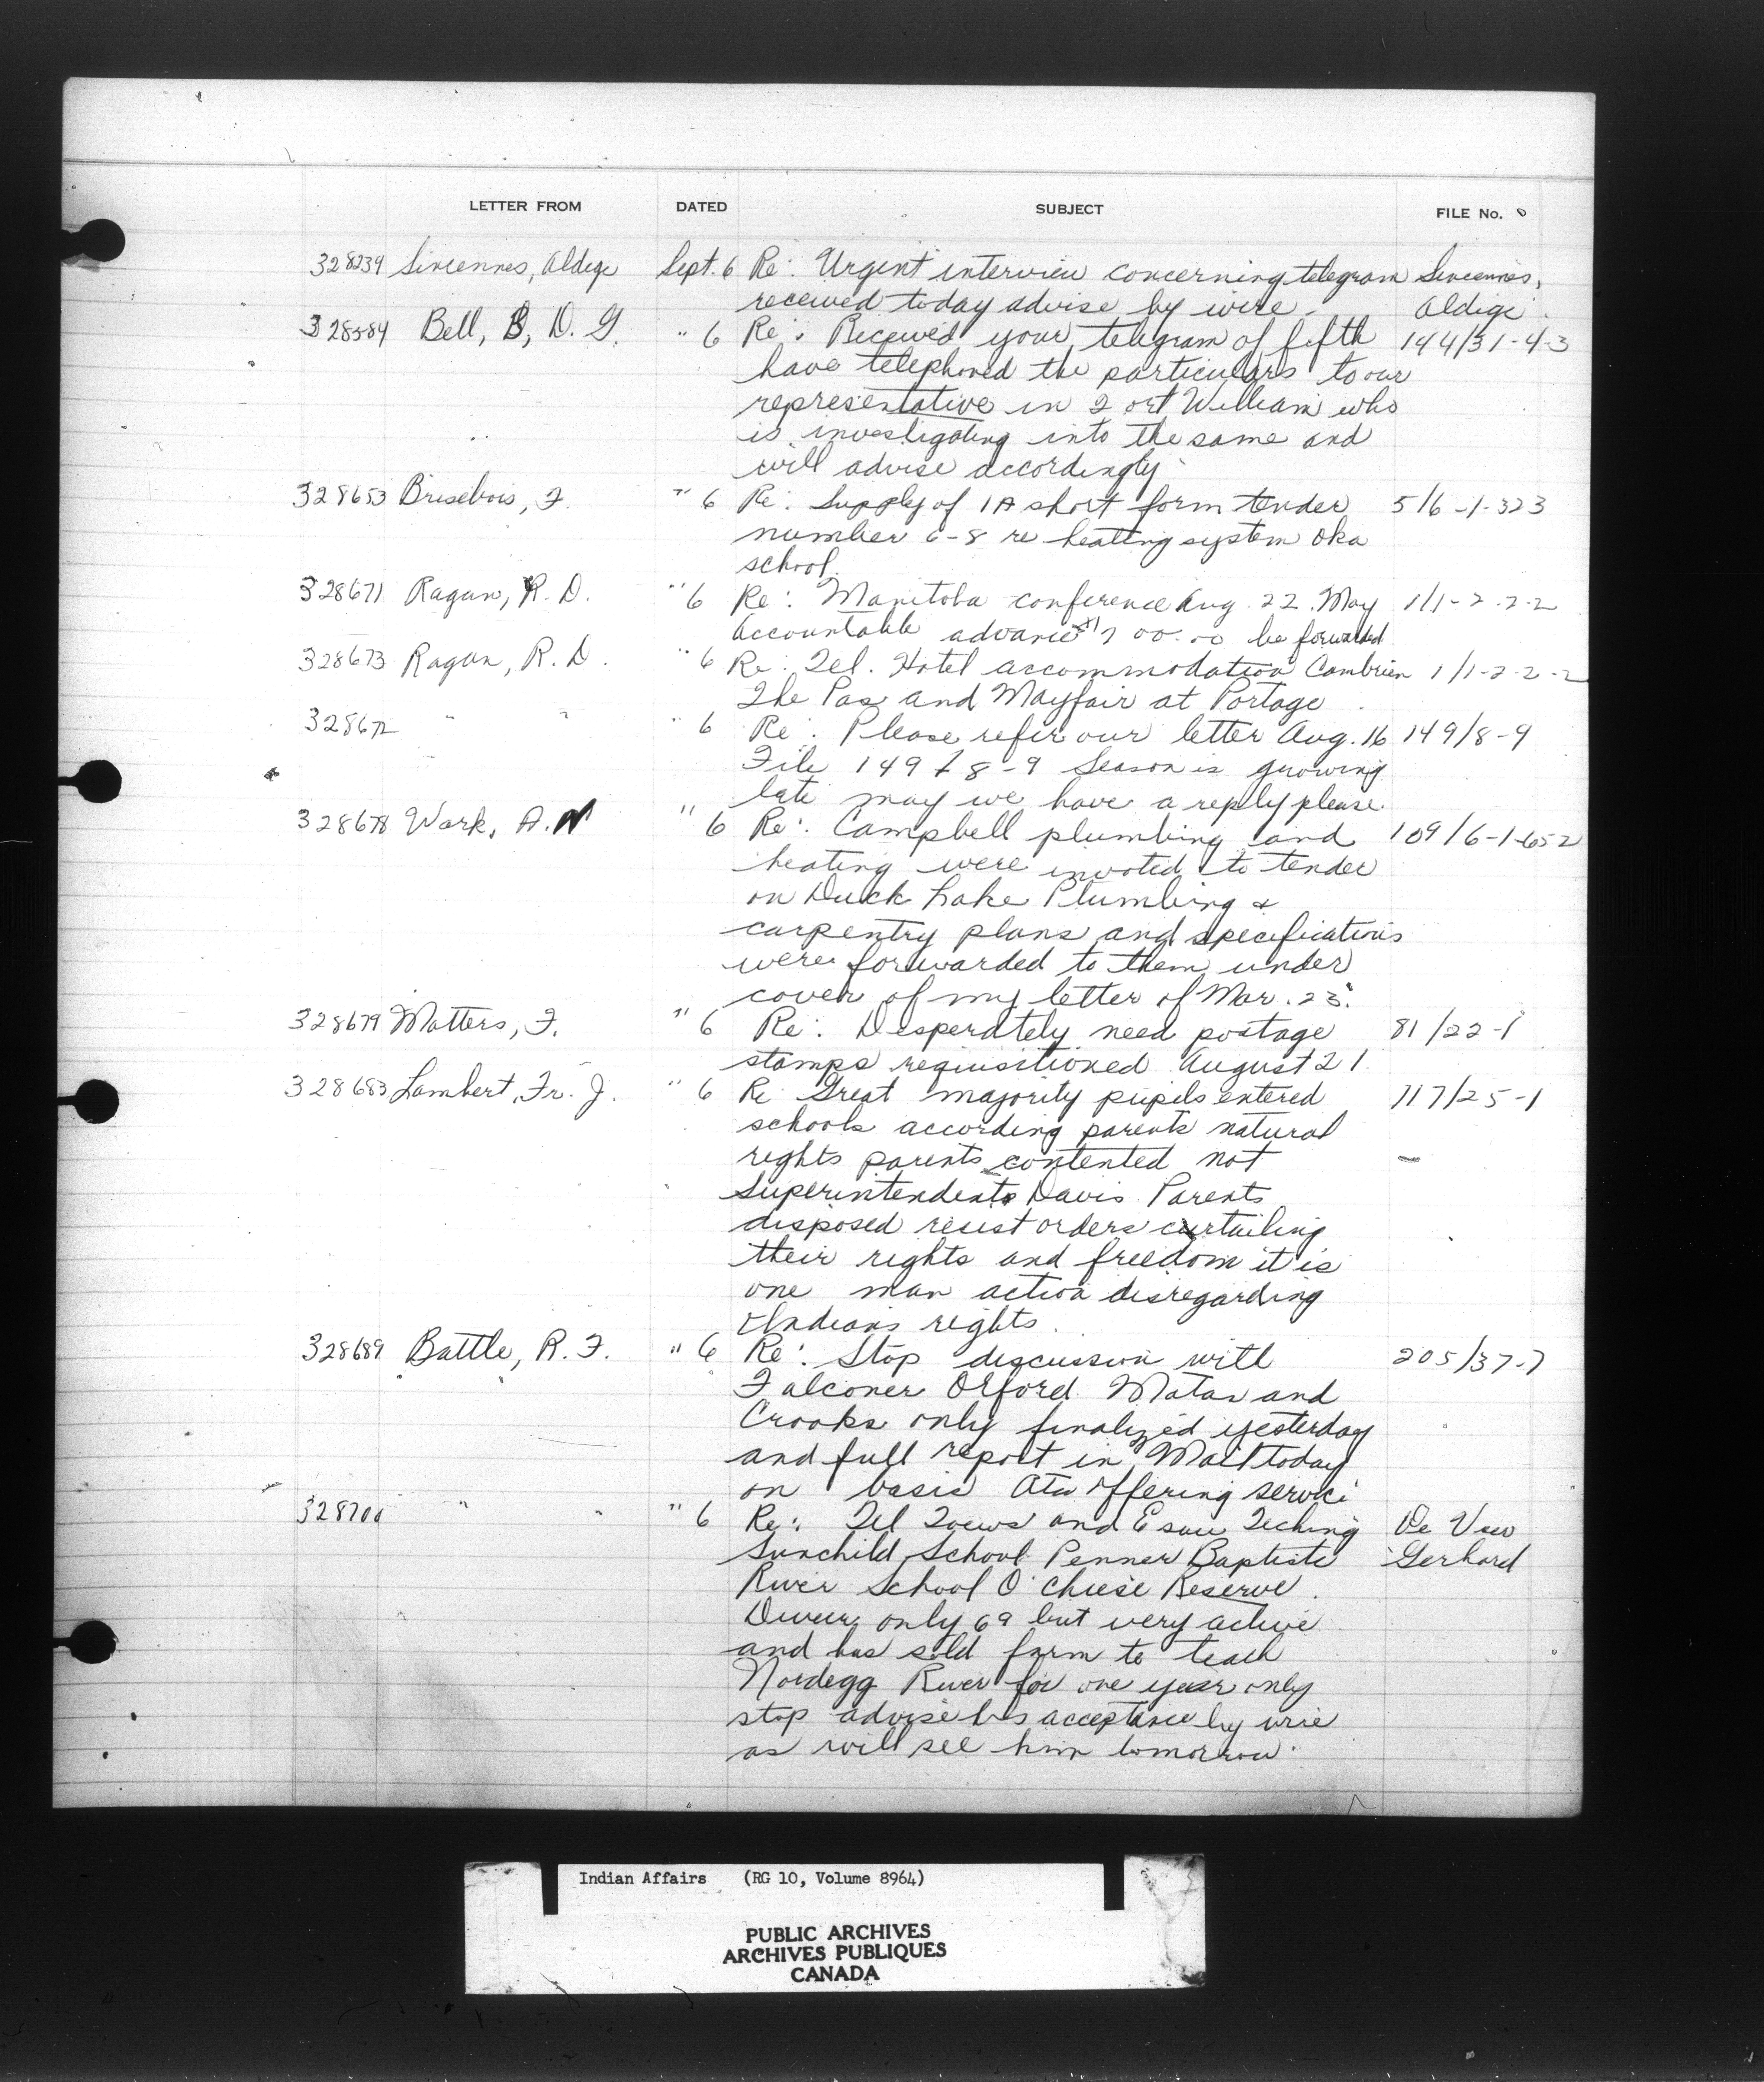 LETTER FROM DATED SUBJECT FILE No.
328239 Sincennes, Aldige Sept. 6 Re: Urgent interview concerning telegram Sincennes,
received today advise by wire. Aldige
328584 Bell, B, D. G. " 6 Re: Received your telegram of fifth 144/31-4-3
have telephoned the particulars to our
representative in Fort William who
is investigating into the same and
will advise accordingly
328653 Brisebois, F. " 6 Re: Supply of 1A short form tender 516-1-323
number 6-8 re heating system Oka
school.
328671 Ragan, R. D. " 6 Re: Manitoba conference Aug. 22. May 1/1-2-2-2
Accountable advance 700.00 be forwarded
328673 Ragan, R. D. " 6 Re: Tel. Hotel accommodation Cambrian 1/1-2-2-2
The Pas and Mayfair at Portage
328672 " " " 6 Re: Please refer our letter Aug. 16 149/8-9
File 149/8-9 Season is growing
late may we have a reply please.
328678 Wark, A. N " 6 Re: Campbell plumbing and 109/6-1-652
heating were invoted to tender
on Duck Lake Plumbing &
carpentry plans and specifications
were forwarded to them under
cover of my letter of Mar. 23.
328679 Matters, F. " 6 Re: Desperately need postage 81/22-1
stamps requisitioned August 21
328683 Lambert, Fr. J. " 6 Re Great majority pupils entered 117/25-1
schools according parents natural
rights parents contented not
Superintendent Davis. Parents
disposed resist orders curtailing
their rights and freedom it is
one man action disregarding
Indians rights.
328689 Battle, R. F. " 6 Re: Stop discussion with 205/37-7
Falconer Orford Matas and
Crooks only finalized yesterday
and full report in Mail today
on basis offering service
328700 " " " 6 Re: Tel Toews and Esau Teching De Veer
Sunchild School Penner Baptiste Gerhard
River School O'Chiese Reserve.
only 69 but very active
and has sold farm to teach
Nordegg River for one year only
stop advise his acceptance by wire
as will see him tomorrow.
Indian Affairs (RG 10, Volume 8964)
PUBLIC ARCHIVES
ARCHIVES PUBLIQUES
CANADA